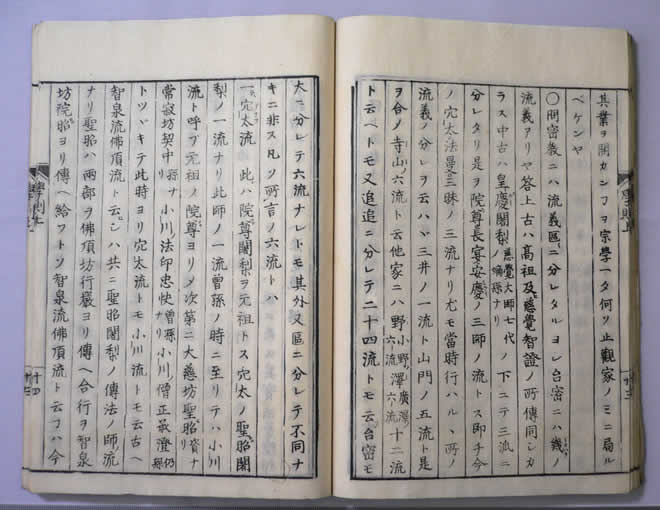 其業ヲ開カンフヲ宗學一タ何ソ止觀家ノミニ局ル
ベケンヤ
〇問密教ニハ流義區ニ分レタルヨシ台密ニハ幾ノ
流義アリヤ答上古ハ高祖及慈覺智證ノ所傳同シカ
ラス中古ハ皇慶闍梨慈覺大師七代ノ嫡孫ナリノ下ニテ三流ニ
分レタリ是ヲ院尊長宴安慶ノ三師ノ流トス即チ今
ノ穴太法曼三昧ノ三流ナリ尤モ當時行ハルヽ所ノ
流義ノ分レヲ云ハヽ三井ノ一流ト山門ノ五流ト是
ヲ合ノ寺山六流ト云他家ニハ野小野六流澤廣澤六流十二流
ト云ヘトモ又追追ニ分レテ二十四流トモ云台密モ
學則上
十三
大ニ分レテ六流ナレトモ其外又區ニ分レテ不同ナ
キニ非ス凡ソ所言ノ六流トハ
一穴太流 此ハ院尊闍梨ヲ元祖トス穴太ノ聖昭闍
梨ノ一流ナリ此師ノ一流曾孫ノ時ニ至リテハ小川
流ト呼ブ元祖ノ院尊ヨリメ次第ニ大慈坊聖昭資ナリ
常寂坊契中孫ナリ小川法印忠快曾孫小川僧正承澄仍孫
トツヾキテ此時ヨリ穴太流トモ小川流トモ云古ヘ
智泉流佛頂流ト云シハ共ニ聖昭闍梨ノ傳法ノ師流
ナリ聖昭ハ兩部ヲ佛頂坊行嚴ヨリ傳ヘ合行ヲ智泉
坊院昭ヨリ傳ヘ給フトソ智泉流佛頂流ト云フハ今
學則上
十四